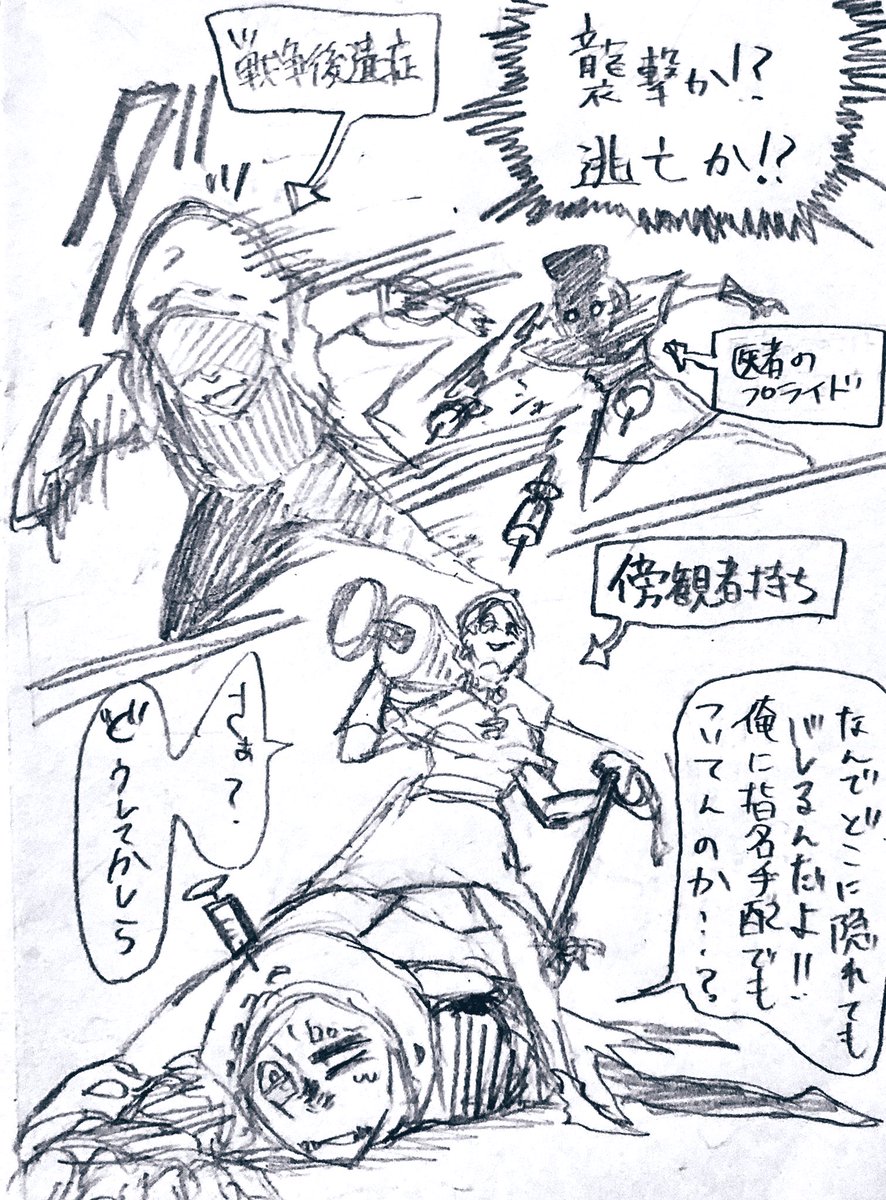 襲撃か!?
逃亡か!?
戦争後遺症
ダッ
医者の
プライド
傍観者持ち
なんでどこに隠れても
バレるんだよ!!
俺に指名手配でも
ついてんのか…?
さぁ?
どうしてかしら